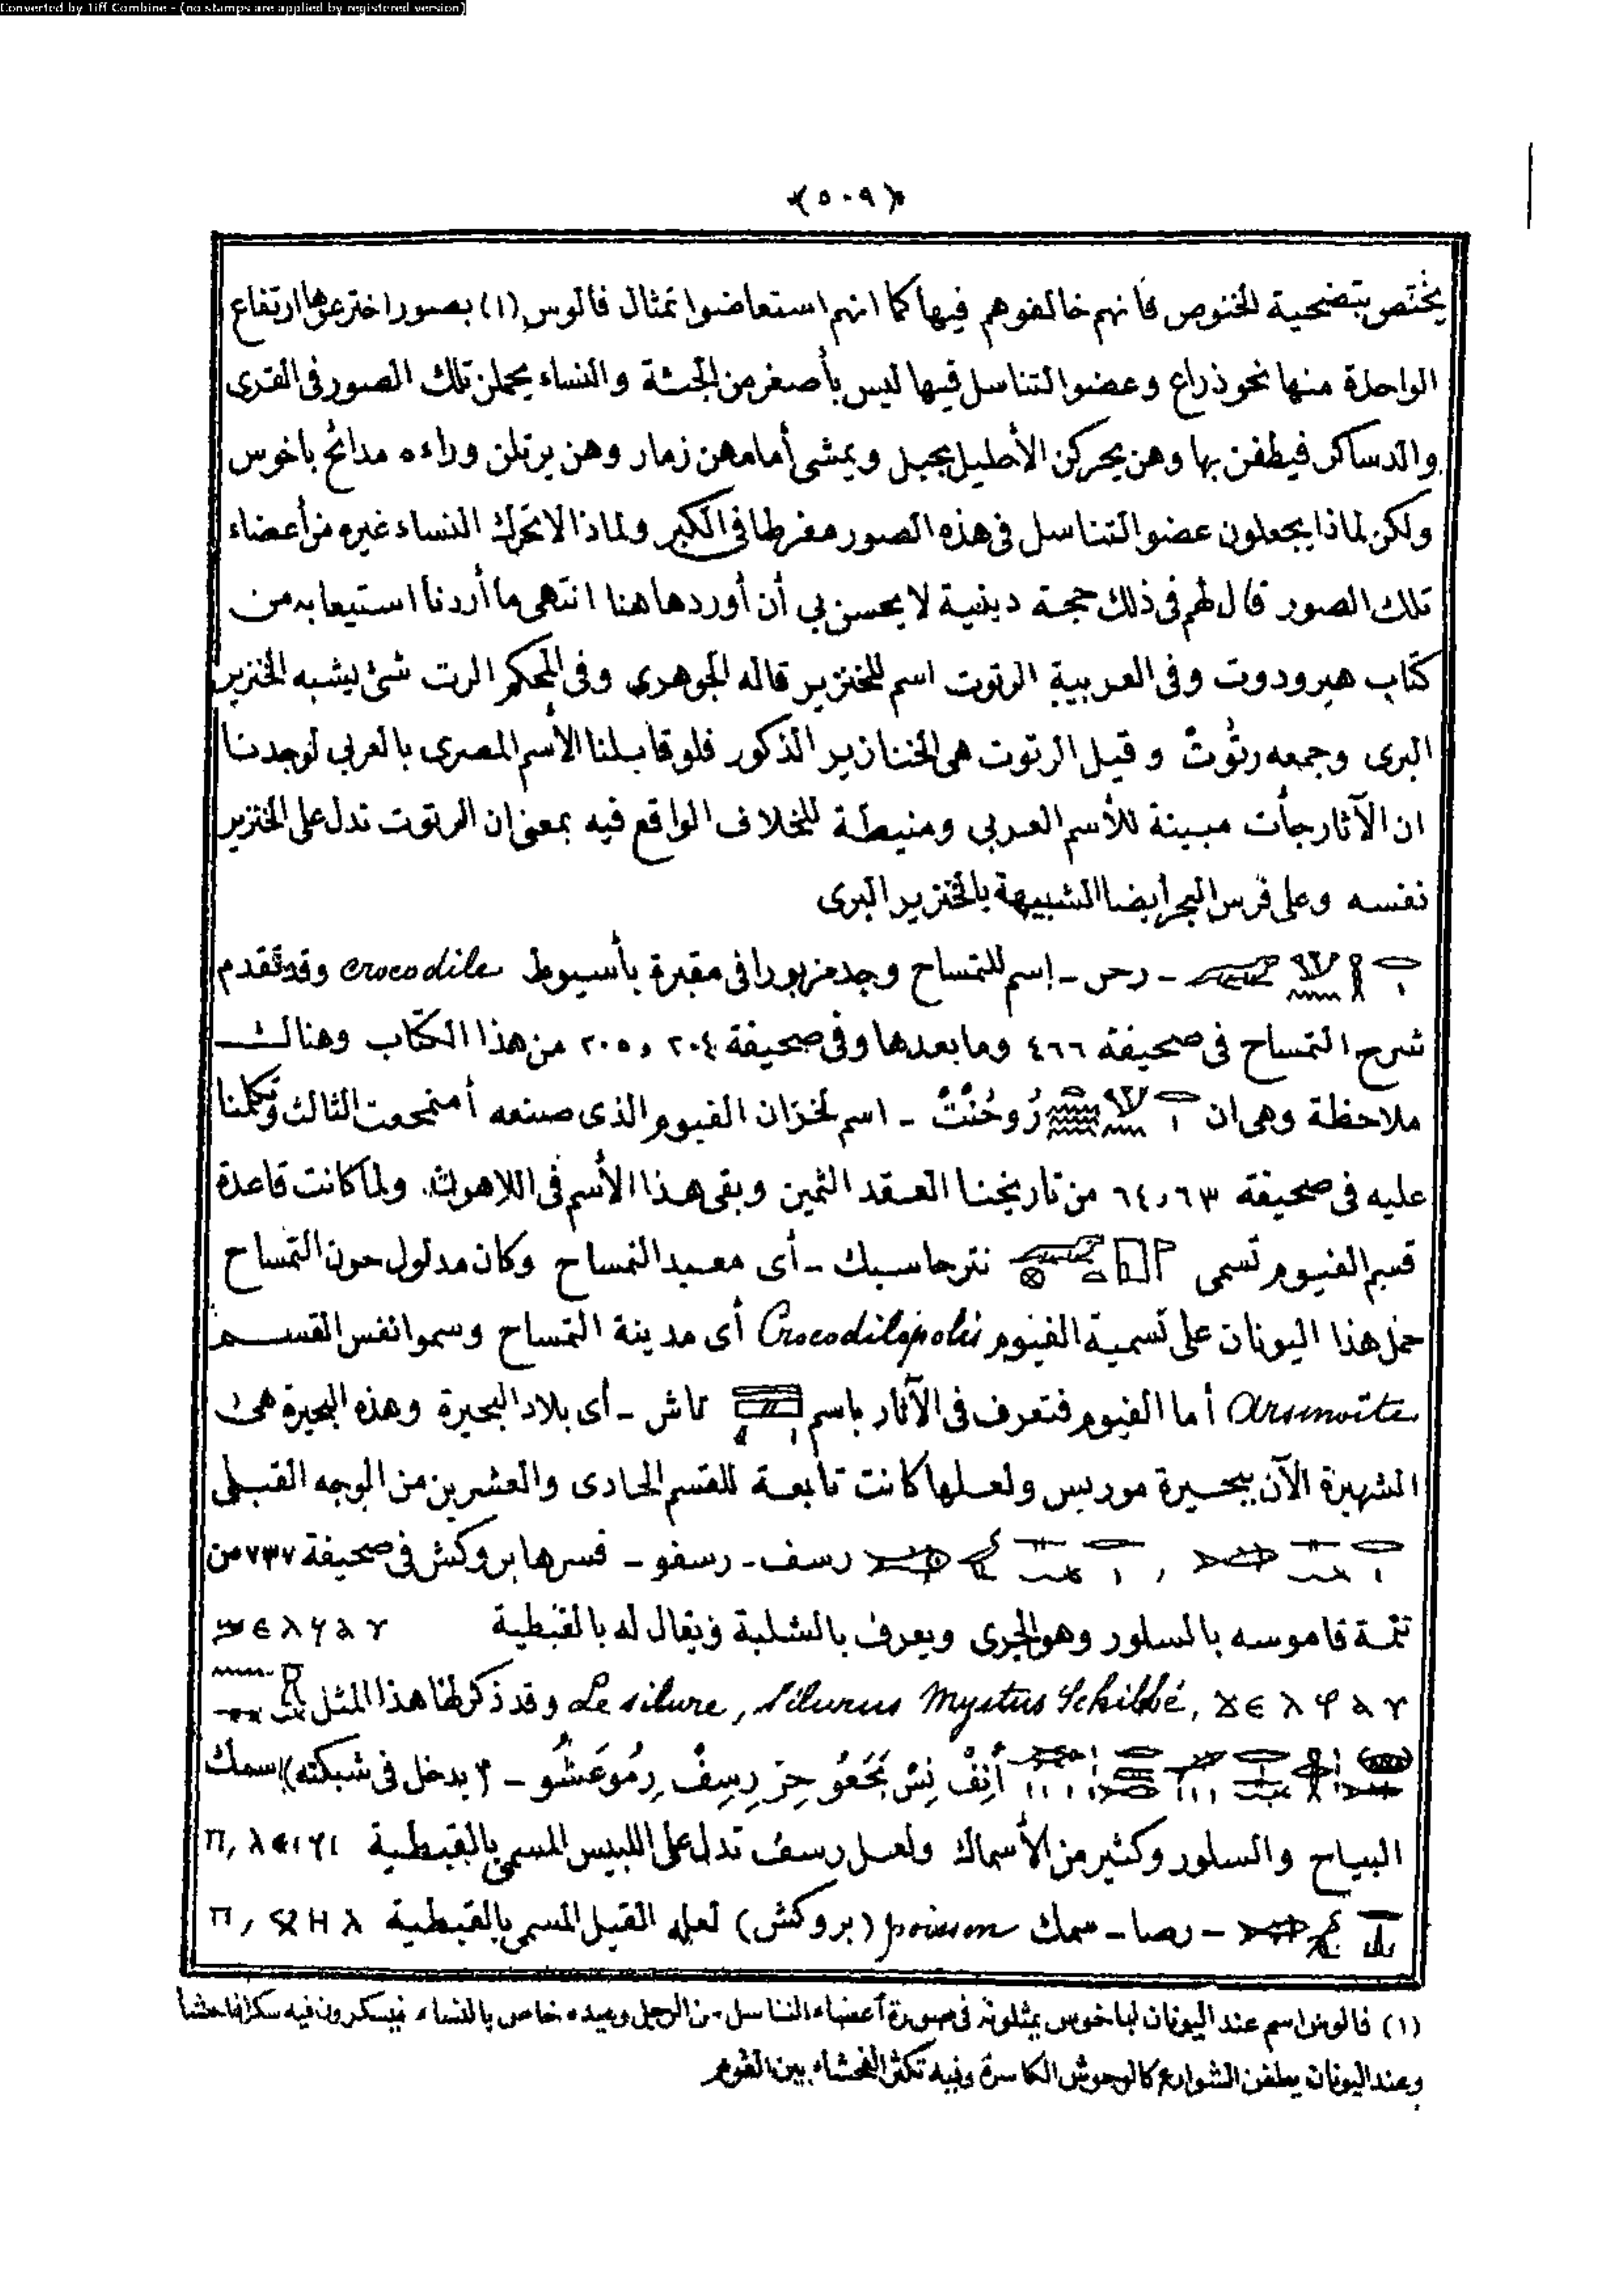 Converted by Tiff Combine - (no stamps are applied by registered version)
﴿٥٠٩﴾
يختص بتضحية الخنوص فانهم خالفوهم فيها كما انهم استعاضوا تمثال فالوس (١) بصور اخترعوها ارتفاع
الواحدة منها نحو ذراع وعضو التناسل فيها ليس بأصغر من الجثة والنساء يحملن تلك الصور فى القرى
والدساكر فيطفن بها وهن يحركن الأحليل بحبل ويمشى أمامهن زمار وهن يرتلن وراءه مدائح باخوس
ولكن لماذا يجعلون عضو التناسل فى هذه الصور مفرطا فى الكبر ولماذا لا تحرك النساء غيره من أعضاء
تلك الصور قال لهم فى ذلك حجة دينية لا يحسن بي أن أوردها هنا انتهى ما أردنا استيعابه من
كتاب هيرودوت وفى العربية الرتوت اسم للخنزير قاله الجوهرى وفى المحكم الرت شئ يشبه الخنزير
البرى وجمعه رتُوتٌ وقيل الرتوت هى الخنازير الذكور فلو قابلنا الأسم المصرى بالعربي لوجدنا
ان الآثار جأت مبينة للأسم العربي ومنيطة للخلاف الواقع فيه بمعنى ان الرتوت تدل على الخنزير
نفسه وعلى فرس البحر أيضا الشبيهة بالخنزير البرى
- رحن - إسم للتمساح وجد مزبورا فى مقبرة بأسيوط crocodile وقد تقدم
شرح التمساح فى صحيفة ٤٦٦ وما بعدها وفى صحيفة ٢٠٤ و ٢٠٥ من هذا الكتاب وهنالك
ملاحظة وهى ان رُوحُنْتْ - اسم لخزان الفيوم الذى صنعه أمنمحعت الثالث وتكلمنا
عليه فى صحيفة ٦٣ و ٦٤ من تاريخنا العقد الثمين وبقى هذا الأسم فى اللاهون. ولما كانت قاعدة
قسم الفيوم تسمى نترحاسبك - أى معبد التمساح وكان مدلول حون التمساح
حمل هذا اليونان على تسمية الفيوم Crocodilopolis أى مدينة التمساح وسموا نفس القسم
Arsinoïte أما الفيوم فتعرف فى الآثار باسم تاش - أى بلاد البحيرة وهذه البحيرة هى
الشهيرة الآن ببحيرة موريس ولعلها كانت تابعة للقسم الحادى والعشرين من الوجه القبلى
رسف - رسفو - فسرها بروكش فى صحيفة ٧٣٧ من
تتمة قاموسه بالسلور وهو الجرى ويعرف بالشلبة ويقال له بالقبطية
Le silure, Silurus Mystus Schilbé, وقد ذكر لنا هذا المثل
أَنِفْ نِسْ نَحَعُو حِرْ رِسِفْ رِمُوعَشُو - (يدخل فى شبكته) سمك
البياح والسلور وكثير من الأسماك ولعل رسف تدل على اللبيس المسمى بالقبطية
- رصا - سمك poisson (بروكش) لعله القيل المسمى بالقبطية
(١) فالوس اسم عند اليونان لباخوس يمثلونه فى صورة أعضاء التناسل من الرجل وعيده خاص بالنساء فيسكرون فيه سكرا فاحشا
وعند اليونان يطفن الشوارع كالوحوش الكاسرة وفيه تكثر الفحشاء بين القوم